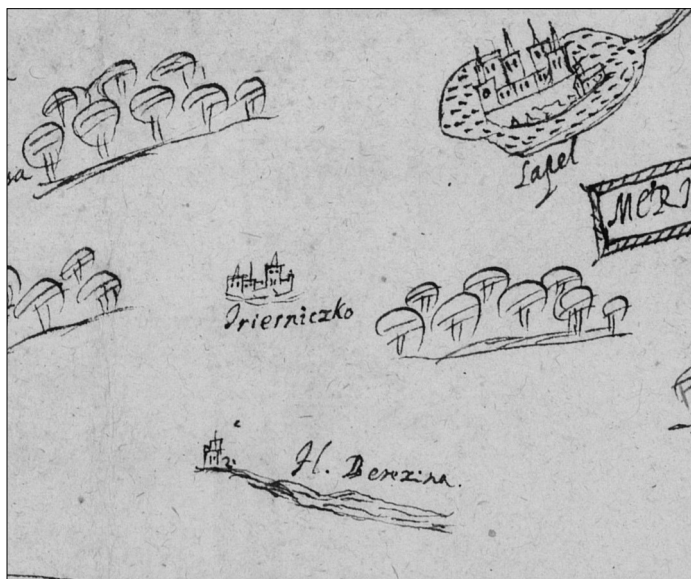 Lapel
MERI
Irierniczko
Fl. Berezina.